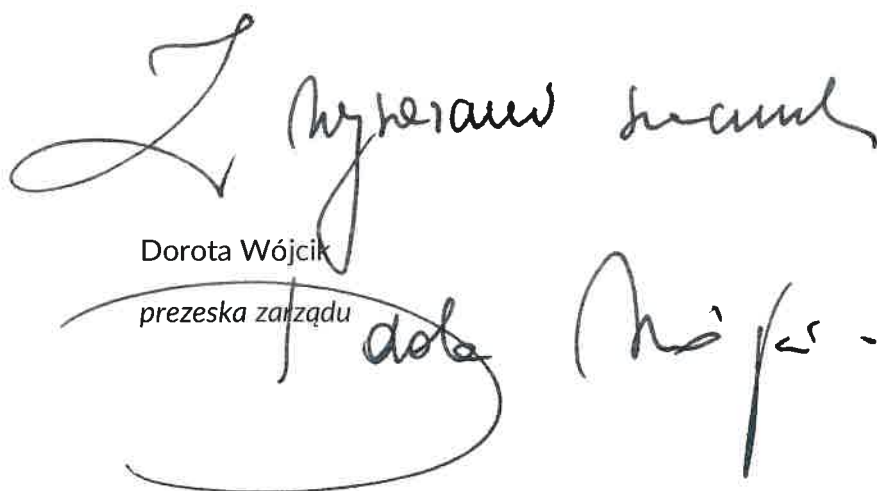 Z wyrazami szacunku
Dorota Wójcik
prezeska zarządu
Wójcik